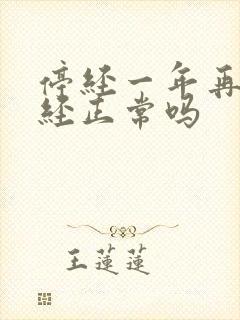 停经一年再
经正常吗
王莲莲